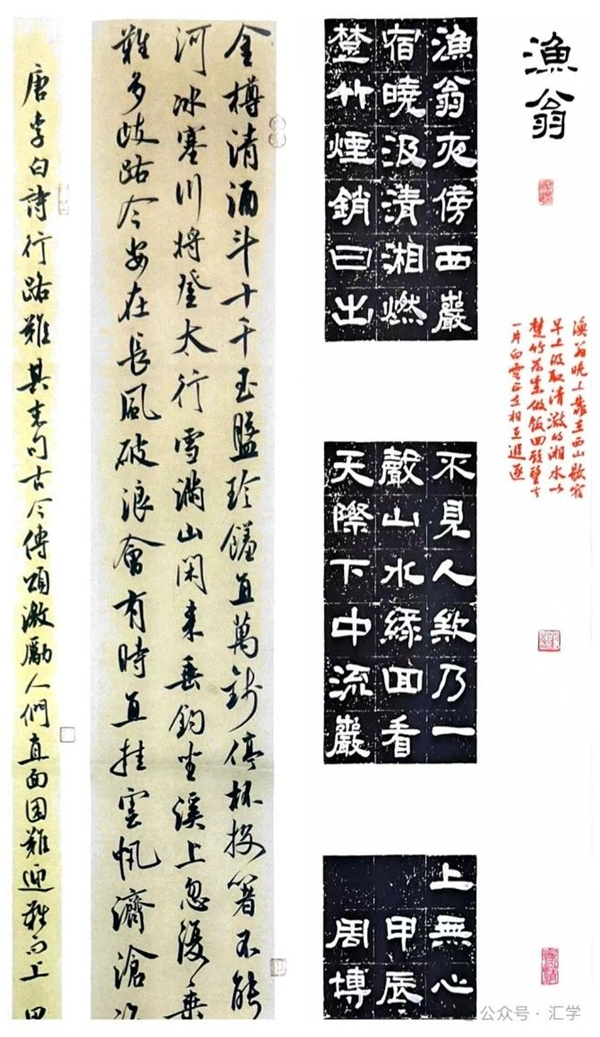 漁翁
漁翁晚上靠在西山歇宿
早上汲取清澈的湘水以
楚竹為柴做飯回頭望去
一片白雲正在相互追逐
漁翁夜傍西巖
宿曉汲清湘燃
楚竹煙銷日出
不見人欸乃一
聲山水綠回看
天際下中流巖
上無心
甲辰
周博
金樽清酒斗十千玉盤珍饈直萬錢停杯投箸不能
河冰塞川將登太行雪滿山閑來垂釣坐溪上忽復乘
難多歧路今安在長風破浪會有時直挂雲帆濟滄
唐李白詩行路難其末句古今傳頌激勵人們直面困難迎難而上
公众号·汇学